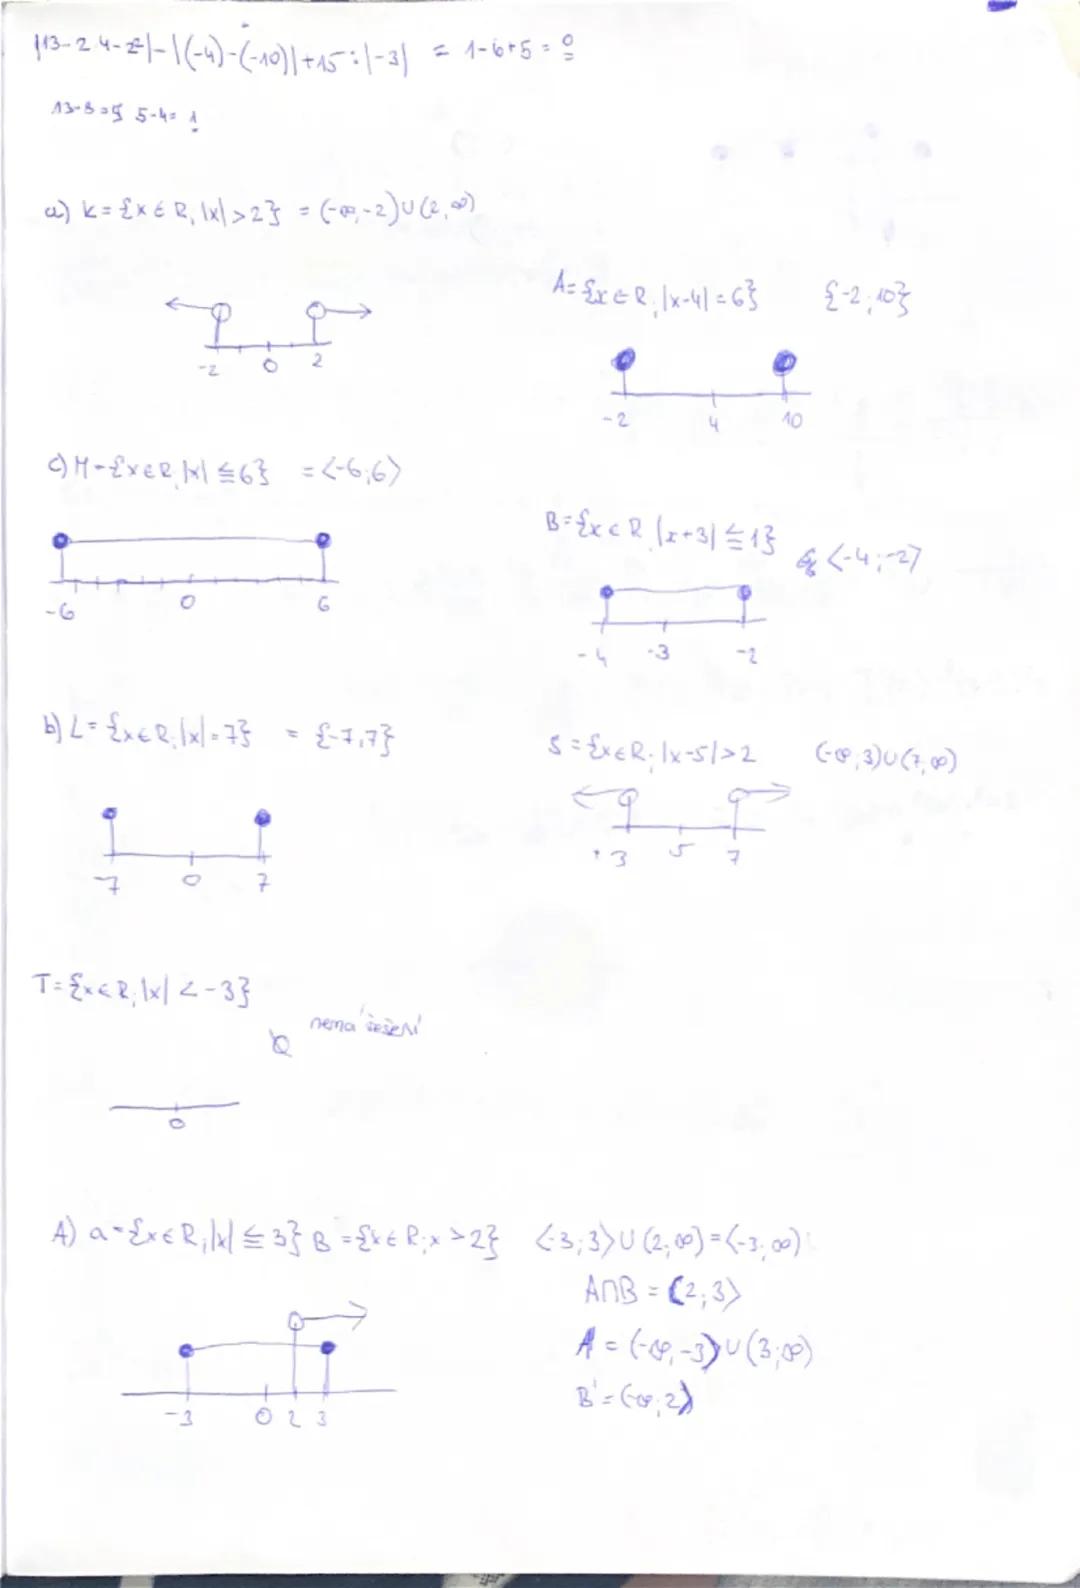 |13-2·4-2²|-|(-4)-(-10)|+15:|-3| = 1-6+5=0
13-8=5 5-4=1
a) K={x∈R, |x|>2} = (-∞,-2)∪(2,∞)
-2 0 2
A={x∈R; |x-4|=6} {-2;10}
-2 4 10
c) M={x∈R, |x|≦6} =<-6;6>
-6 0 6
B={x∈R |x+3|≦1} <-4;-2>
-4 -3 -2
b) L={x∈R; |x|=7} = {-7,7}
-7 0 7
S={x∈R; |x-5|>2 (-∞;3)∪(7;∞)
3 5 7
T={x∈R; |x|<-3}
∅ nemá řešení
0
A) a={x∈R; |x|≦3} B={x∈R; x>2} <-3;3>∪(2;∞)=<-3;∞)
A∩B=(2;3>
A=(-∞,-3)∪(3;∞)
B'=(-∞;2>
-3 0 2 3